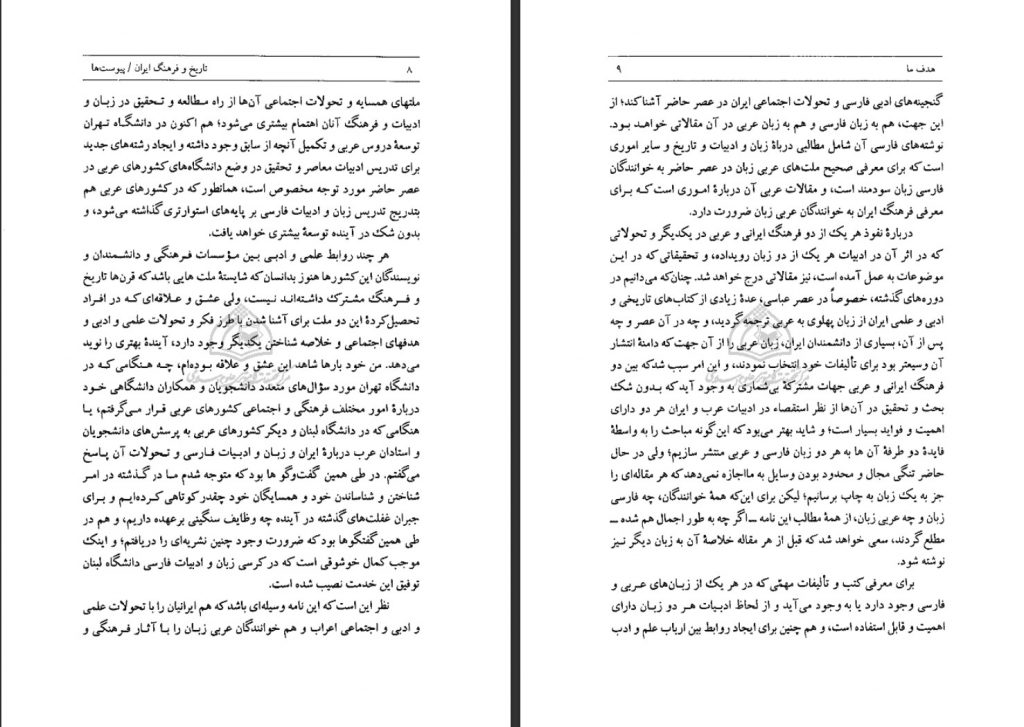 ۸
تاریخ و فرهنگ ایران / پیوست‌ها
ملتهای همسایه و تحولات اجتماعی آن‌ها از راه مطالعه و تحقیق در زبان و
ادبیات و فرهنگ آنان اهتمام بیشتری می‌شود؛ هم اکنون در دانشگاه تهران
توسعهٔ دروس عربی و تکمیل آنچه از سابق وجود داشته و ایجاد رشته‌های جدید
برای تدریس ادبیات معاصر و تحقیق در وضع دانشگاه‌های کشورهای عربی در
عصر حاضر مورد توجه مخصوص است، همانطور که در کشورهای عربی هم
بتدریج تدریس زبان و ادبیات فارسی بر پایه‌های استوارتری گذاشته می‌شود، و
بدون شک در آینده توسعهٔ بیشتری خواهد یافت.
هر چند روابط علمی و ادبی بین مؤسسات فرهنگی و دانشمندان و
نویسندگان این کشورها هنوز بدانسان که شایستهٔ ملت هایی باشد که قرن‌ها تاریخ
و فرهنگ مشترک داشته‌اند نیست، ولی عشق و علاقه‌ای که در افراد
تحصیل‌کردهٔ این دو ملت برای آشنا شدن با طرز فکر و تحولات علمی و ادبی و
هدفهای اجتماعی و خلاصه شناختن یکدیگر وجود دارد، آیندهٔ بهتری را نوید
می‌دهد. من خود بارها شاهد این عشق و علاقه بوده‌ام، چه هنگامی که در
دانشگاه تهران مورد سؤال‌های متعدد دانشجویان و همکاران دانشگاهی خود
دربارهٔ امور مختلف فرهنگی و اجتماعی کشورهای عربی قرار می‌گرفتم، یا
هنگامی که در دانشگاه لبنان و دیگر کشورهای عربی به پرسش‌های دانشجویان
و استادان عرب دربارهٔ ایران و زبان و ادبیات فارسی و تحولات آن پاسخ
می‌گفتم. در طی همین گفت‌وگو ها بود که متوجه شدم ما در گذشته در امر
شناختن و شناساندن خود و همسایگان خود چقدر کوتاهی کرده‌ایم و برای
جبران غفلت‌های گذشته در آینده چه وظایف سنگینی برعهده داریم، و هم در
طی همین گفتگوها بود که ضرورت وجود چنین نشریه‌ای را دریافتم؛ و اینک
موجب کمال خوشوقی است که در کرسی زبان و ادبیات فارسی دانشگاه لبنان
توفیق این خدمت نصیب شده است.
نظر این است که این نامه وسیله‌ای باشد که هم ایرانیان را با تحولات علمی
و ادبی و اجتماعی اعراب و هم خوانندگان عربی زبان را با آثار فرهنگی و
هدف ما
۹
گنجینه‌های ادبی فارسی و تحولات اجتماعی ایران در عصر حاضر آشنا کند؛ از
این جهت، هم به زبان فارسی و هم به زبان عربی در آن مقالاتی خواهد بود.
نوشته‌های فارسی آن شامل مطالبی دربارهٔ زبان و ادبیات و تاریخ و سایر اموری
است که برای معرفی صحیح ملت‌های عربی زبان در عصر حاضر به خوانندگان
فارسی زبان سودمند است، و مقالات عربی آن دربارهٔ اموری است که برای
معرفی فرهنگ ایران به خوانندگان عربی زبان ضرورت دارد.
دربارهٔ نفوذ هر یک از دو فرهنگ ایرانی و عربی در یکدیگر و تحولاتی
که در اثر آن در ادبیات هر یک از دو زبان رویداده، و تحقیقاتی که در این
موضوعات به عمل آمده است، نیز مقالاتی درج خواهد شد. چنان‌که می‌دانیم در
دوره‌های گذشته، خصوصاً در عصر عباسی، عدهٔ زیادی از کتاب‌های تاریخی و
ادبی و علمی ایران از زبان پهلوی به عربی ترجمه گردید، و چه در آن عصر و چه
پس از آن، بسیاری از دانشمندان ایران، زبان عربی را از آن جهت که دامنهٔ انتشار
آن وسیعتر بود برای تألیفات خود انتخاب نمودند، و این امر سبب شد که بین دو
فرهنگ ایرانی و عربی جهات مشترکهٔ بی‌شماری به وجود آید که بدون شک
بحث و تحقیق در آن‌ها از نظر استقصاء در ادبیات عرب و ایران هر دو دارای
اهمیت و فواید بسیار است؛ و شاید بهتر می‌بود که این گونه مباحث را به واسطهٔ
فایدهٔ دو طرفهٔ آن ها به هر دو زبان فارسی و عربی منتشر سازیم؛ ولی در حال
حاضر تنگی مجال و محدود بودن وسایل به مااجازه نمی‌دهد که هر مقاله‌ای را
جز به یک زبان به چاپ برسانیم؛ لیکن برای این‌که همهٔ خوانندگان، چه فارسی
زبان و چه عربی زبان، از همهٔ مطالب این نامه ــ اگر چه به طور اجمال هم شده ــ
مطلع گردند، سعی خواهد شد که قبل از هر مقاله خلاصهٔ آن به زبان دیگر نیز
نوشته شود.
برای معرفی کتب و تألیفات مهمّی که در هر یک از زبان‌های عربی و
فارسی وجود دارد یا به وجود می‌آید و از لحاظ ادبیات هر دو زبان دارای
اهمیت و قابل استفاده است، و هم چنین برای ایجاد روابط بین ارباب علم و ادب